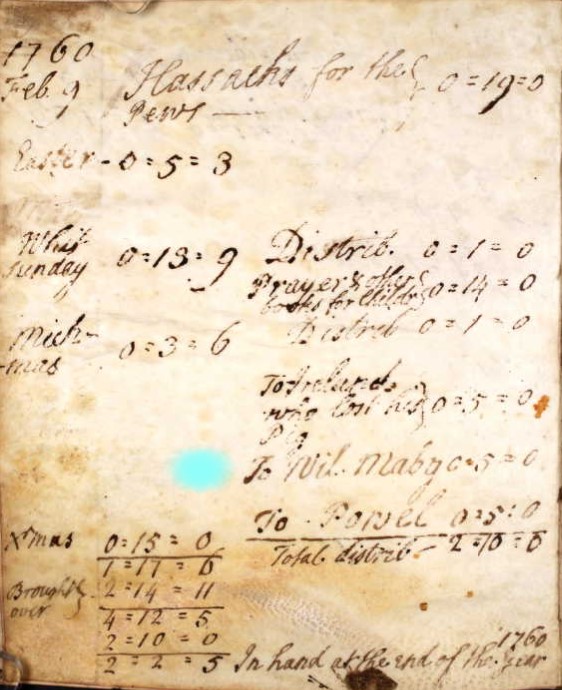 1760
Feb. 9 Hassacks for the } 0=19=0
Pews —
Easter - 0=5=3
Whit
sunday 0=13=9 Distrib. 0=1=0
Prayer & other }
books for Childr } 0=14=0
Mich-
mas 0=3=6 Distrib 0=1=0
To Ireland
who lost his } 0=5=0
Pig
To Wil. Maby 0=5=0
To Powel 0=5=0
Xtmas 0=15=0 Total distrib - 2=10=0
1=17=6
Brought }
over 2=14=11
4=12=5
2=10=0
2=2=5 In hand at the end of the year 1760